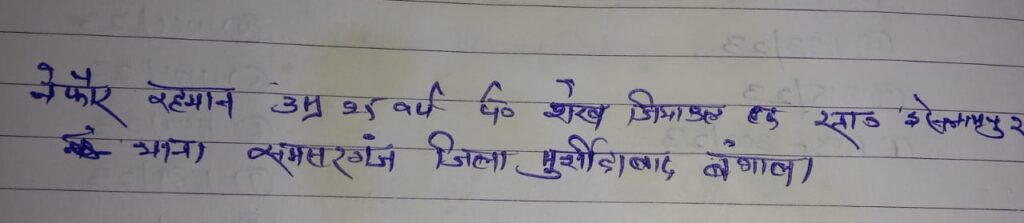 नेफौर रहमान उम्र २५ वर्ष पि० शेख जियाउल हक सा० इस्लामपुर
थाना समसरगंज जिला मुर्शीदाबाद बंगाल।